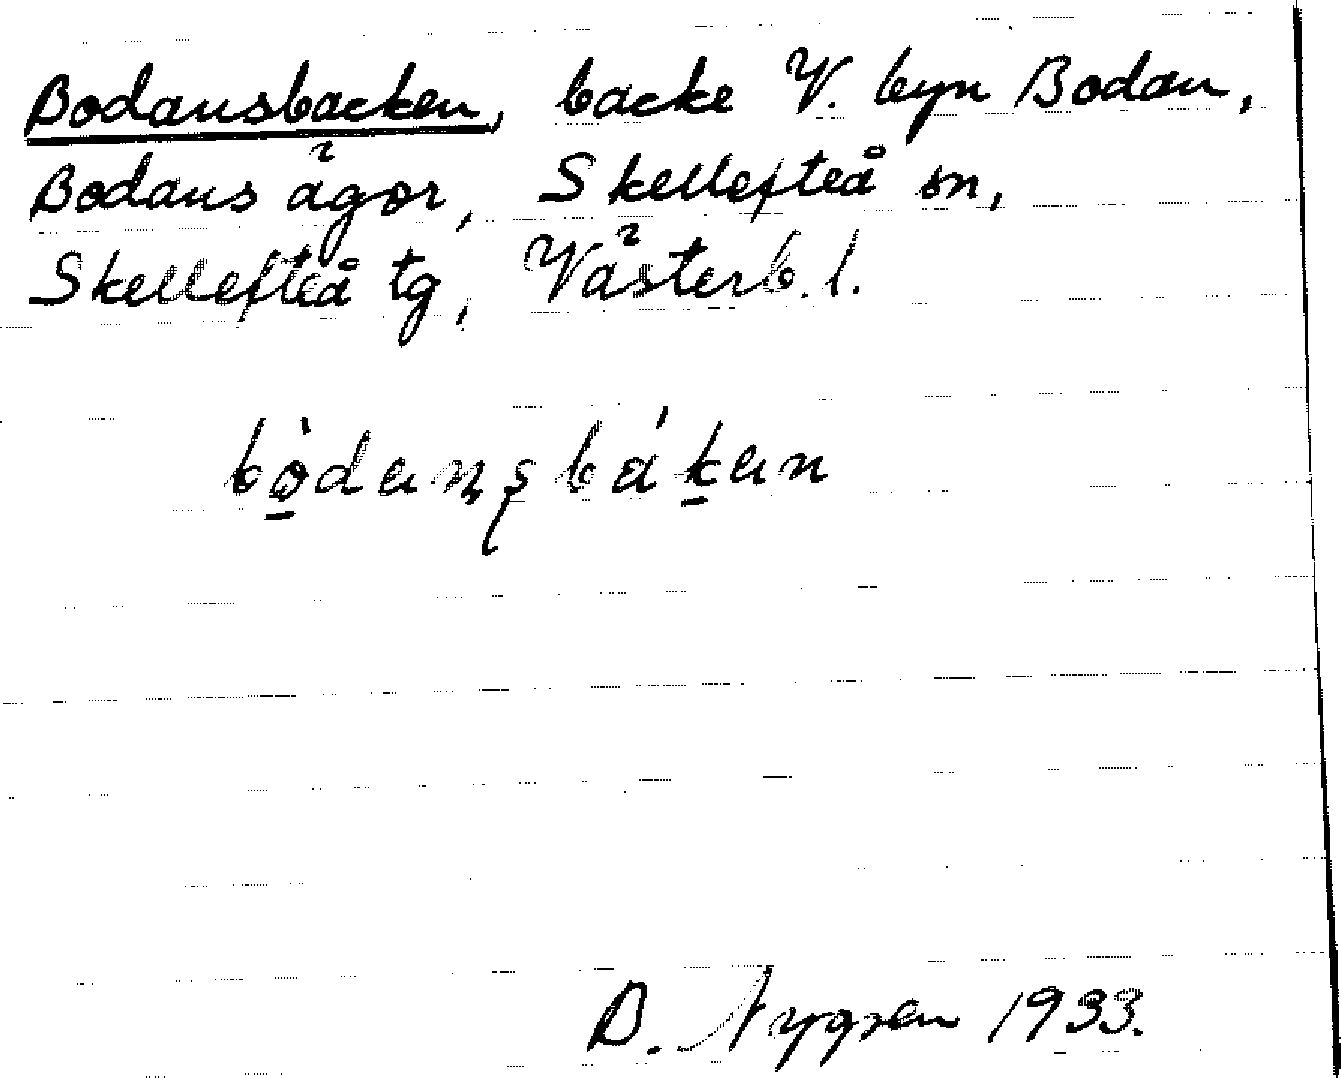 Bodansbacken, backe V. byn Bodan,
Bodans ägor, Skellefteå sn,
Skellefteå tg, Västerb. l.
bòdanşbákan
B. Nygren 1933.